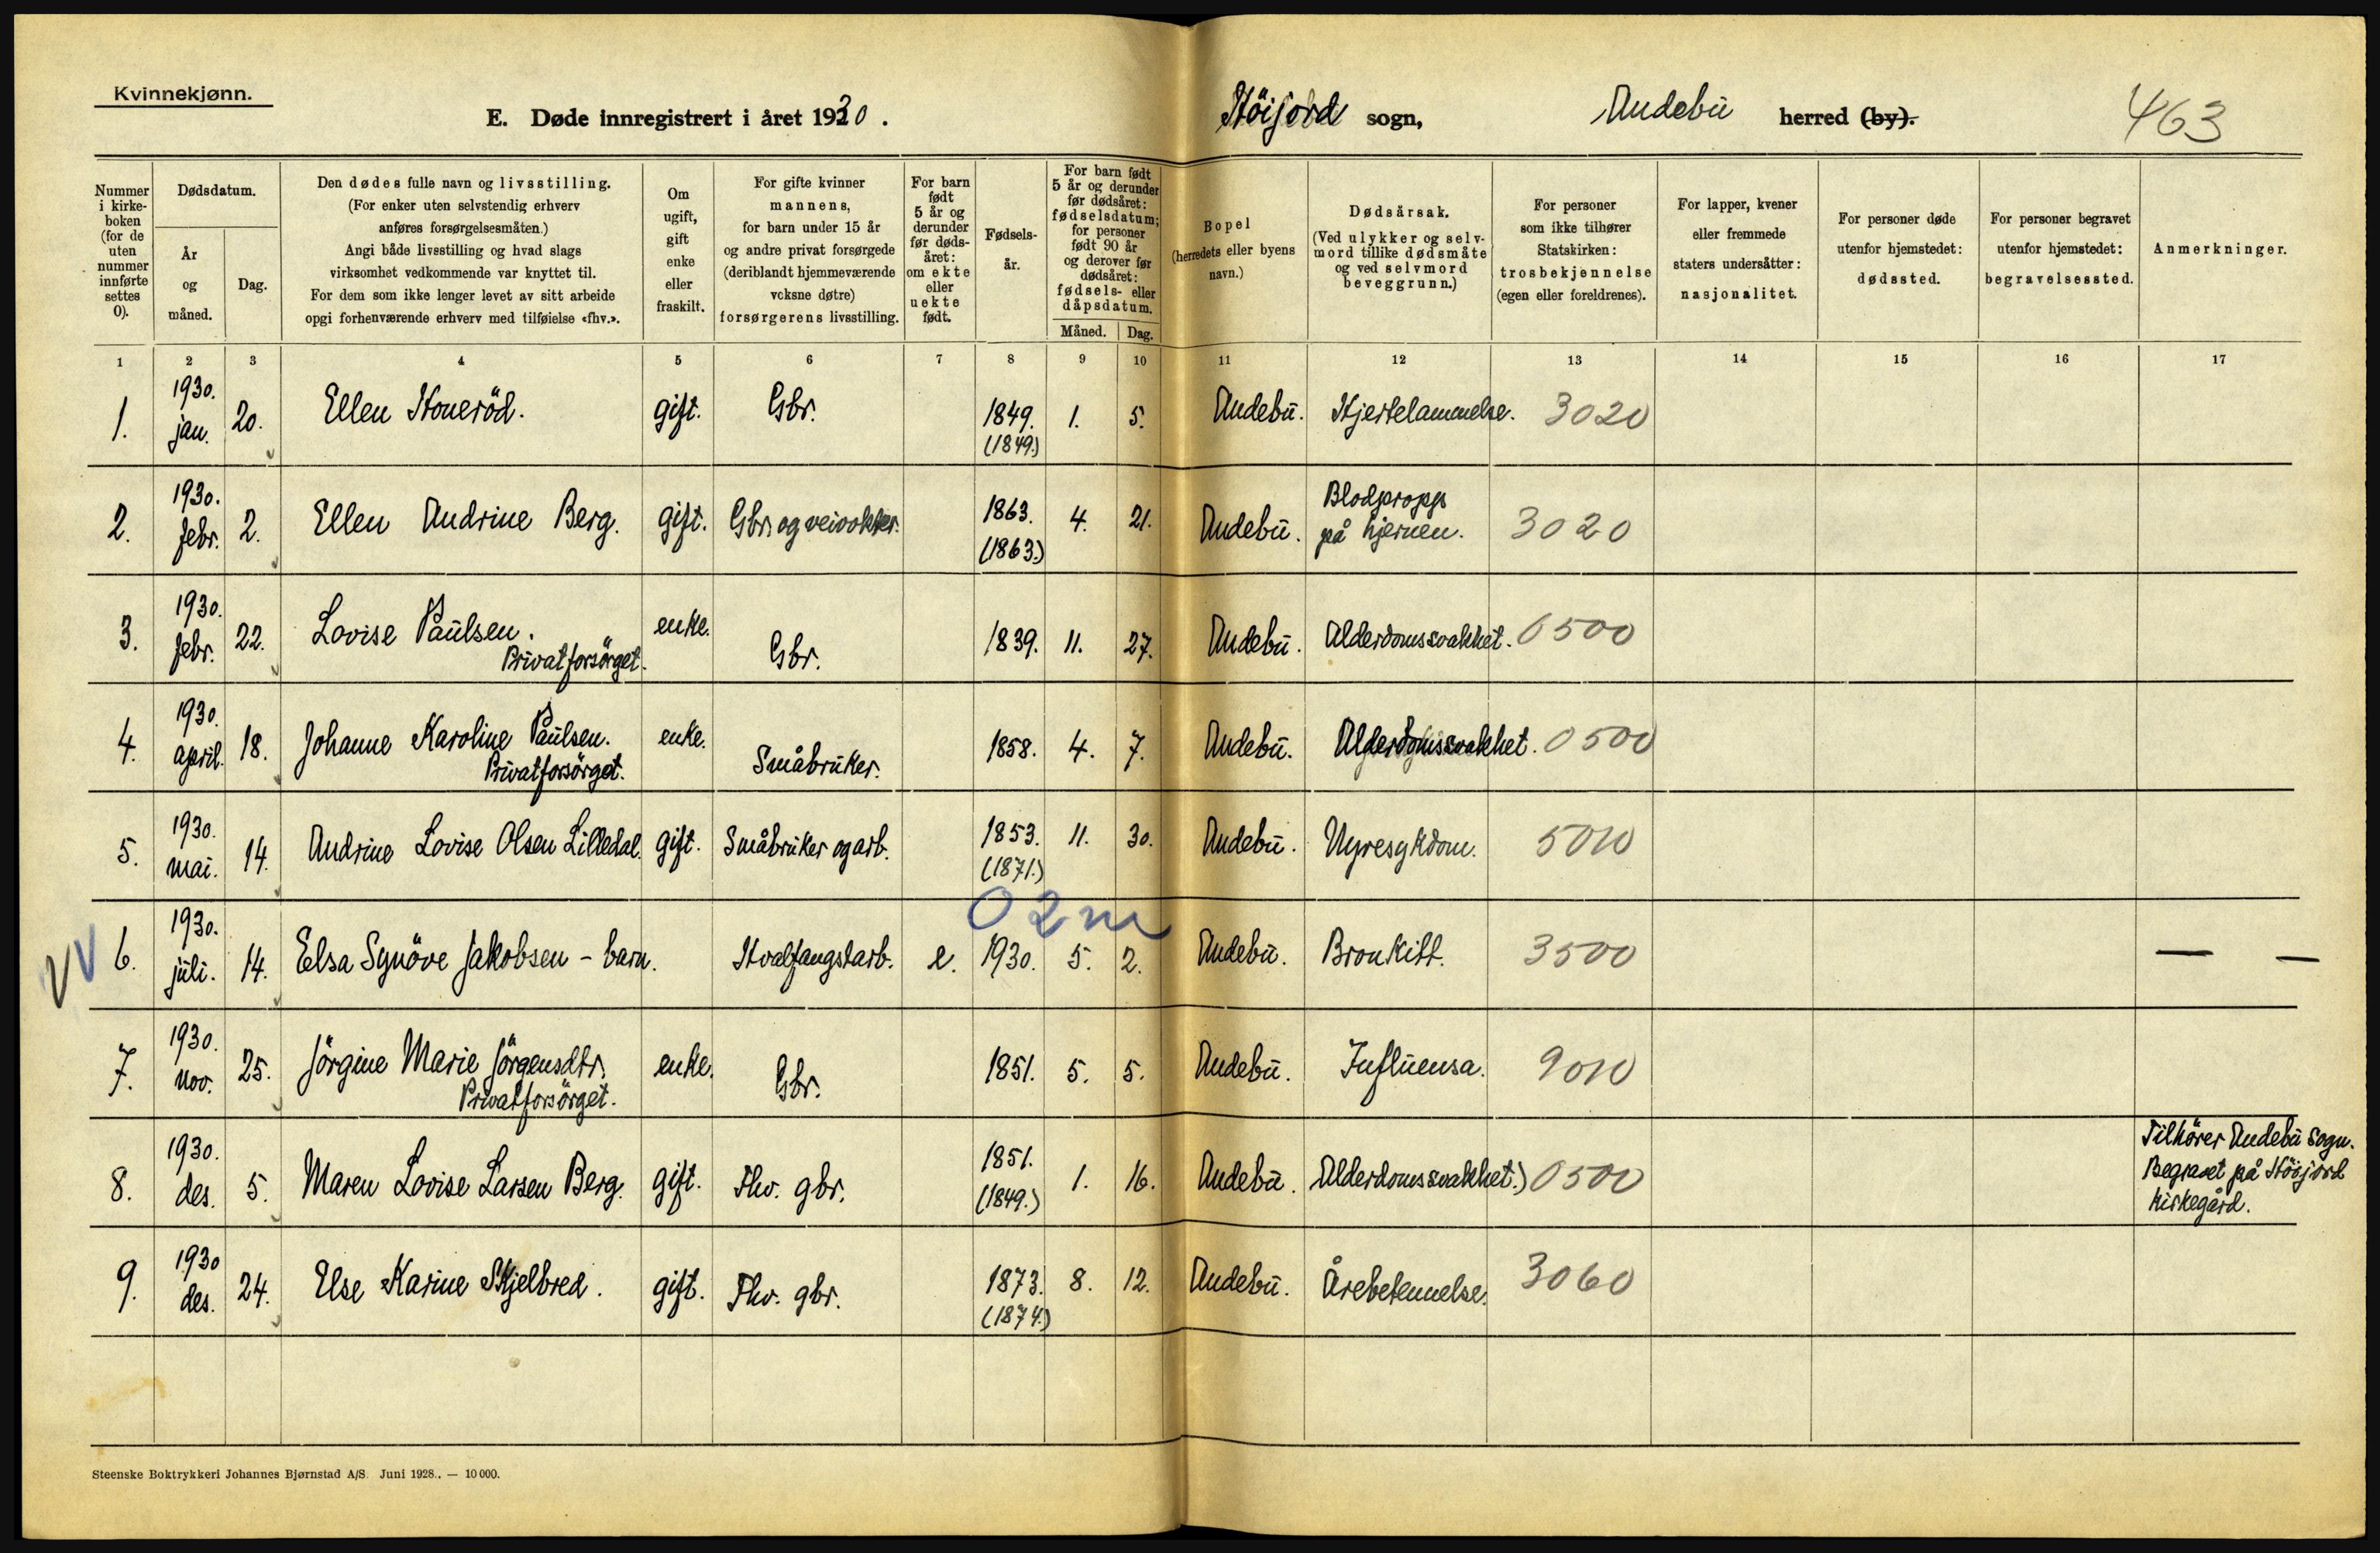 Kvinnekjønn.
E. Døde innregistrert i året 1930.
Höijord sogn, Andebu herred (by).
463
Nummer i kirke-boken (for de uten nummer innførte settes 0).
Dødsdatum.
År og måned.
Dag.
Den dødes fulle navn og livsstilling.
(For enker uten selvstendig erhverv
anføres forsørgelsesmåten.)
Angi både livsstilling og hvad slags
virksomhet vedkommende var knyttet til.
For dem som ikke lenger levet av sitt arbeide
opgi forhenværende erhverv med tilføielse «fhv.».
Om ugift, gift enke eller fraskilt.
For gifte kvinner
mannens,
for barn under 15 år
og andre privat forsørgede
(deriblandt hjemmeværende
voksne døtre)
forsørgerens livsstilling.
For barn født 5 år og derunder før døds-året: om ekte eller uekte født.
Fødsels-år.
For barn født
5 år og derunder
før dødsåret:
fødselsdatum;
for personer
født 90 år
og derover før
dødsåret:
fødsels- eller
dåpsdatum.
Måned. Dag.
Bopel
(herredets eller byens
navn.)
Dødsårsak.
(Ved ulykker og selv-
mord tillike dødsmåte
og ved selvmord
beveggrunn.)
For personer
som ikke tilhører
Statskirken:
trosbekjennelse
(egen eller foreldrenes).
For lapper, kvener
eller fremmede
staters undersåtter:
nasjonalitet.
For personer døde
utenfor hjemstedet:
dødssted.
For personer begravet
utenfor hjemstedet:
begravelsessted.
Anmerkninger.
1 2 3 4 5 6 7 8 9 10 11 12 13 14 15 16 17
1. 1930. jan. 20. Ellen Honeröd. gift. Gbr. 1849. (1849.) 1. 5. Andebu. Hjertelammelse. 3020
2. 1930. febr. 2. Ellen Andrine Berg. gift. Gbr. og veivokter. 1863. (1863.) 4. 21. Andebu. Blodpropp på hjernen. 3020
3. 1930. febr. 22. Lovise Paulsen. Privatforsörget. enke. Gbr. 1839. 11. 27. Andebu. Alderdomssvakhet. 0500
4. 1930. april. 18. Johanne Karoline Paulsen. Privatforsörget. enke. Småbruker. 1858. 4. 7. Andebu. Alderdomssvakhet. 0500
5. 1930. mai. 14. Andrine Lovise Olsen Lilledal. gift. Småbruker og arb. 1853. (1871.) 11. 30. Andebu. Nyresykdom. 5010
0 2 m
VV 6. 1930. juli. 14. Elsa Synöve Jakobsen - barn. Hvalfangstarb. e. 1930. 5. 2. Andebu. Bronkitt. 3500 — —
7. 1930. nov. 25. Jörgine Marie Jörgensdtr. Privatforsörget. enke. Gbr. 1851. 5. 5. Andebu. Influensa. 9010
8. 1930. des. 5. Maren Lovise Larsen Berg. gift. Fhv. gbr. 1851. (1849.) 1. 16. Andebu. Alderdomssvakhet.) 0500 Tilhörer Andebu sogn. Begravet på Höijord kirkegård.
9. 1930 des. 24. Else Karine Skjelbred. gift. Fhv. gbr. 1873. (1874.) 8. 12. Andebu. Årebetennelse. 3060
Steenske Boktrykkeri Johannes Bjørnstad A/S. Juni 1928.. — 10 000.